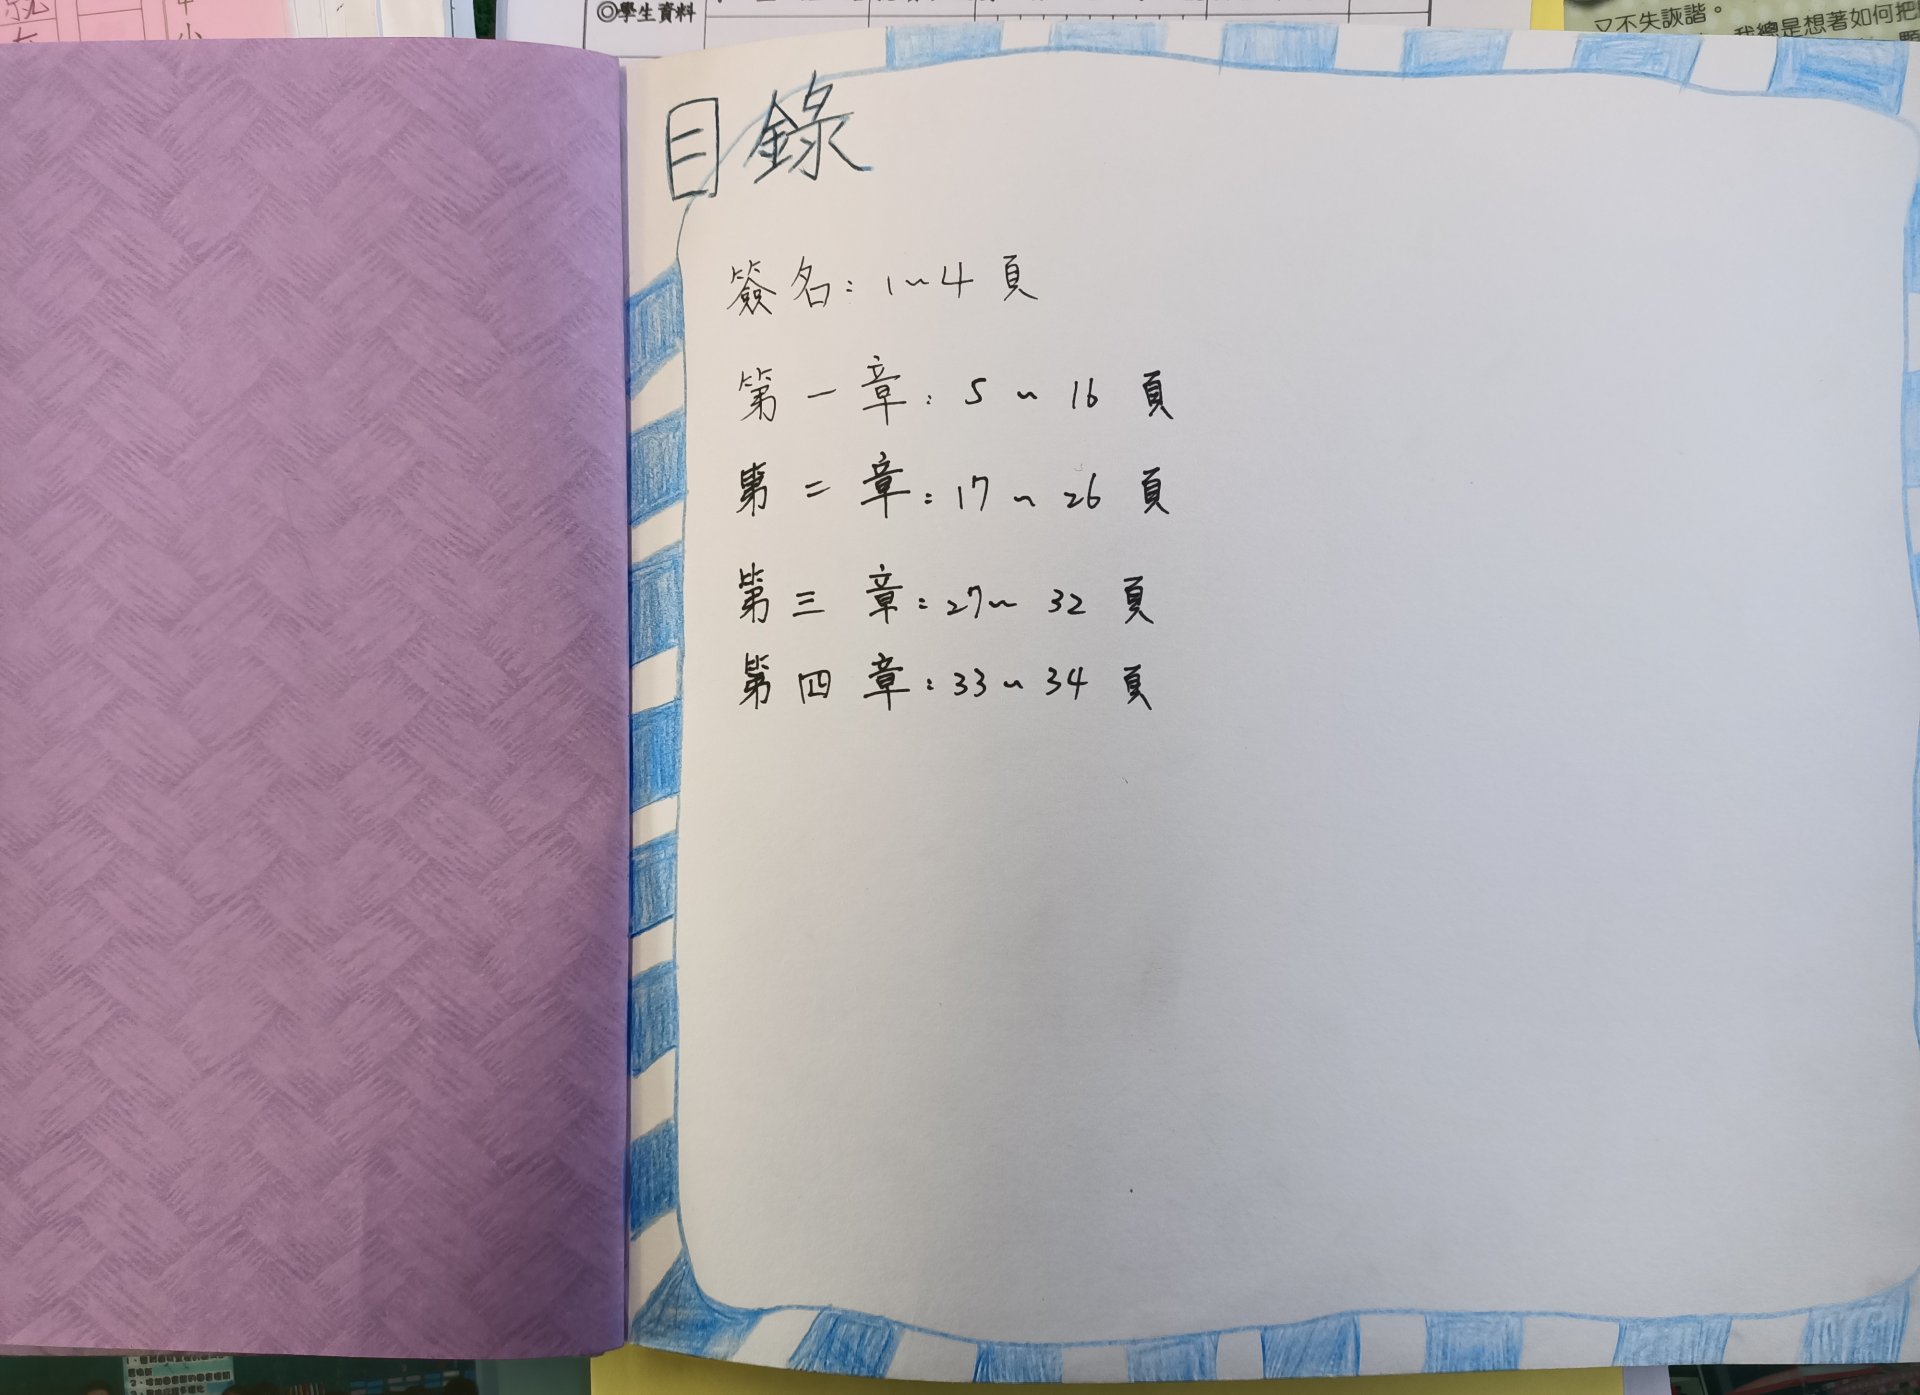 ◎學生資料
又不失詼諧。
我總是想著如何把
目錄
簽名:1~4頁
第一章:5~16頁
第二章:17~26頁
第三章:27~32頁
第四章:33~34頁